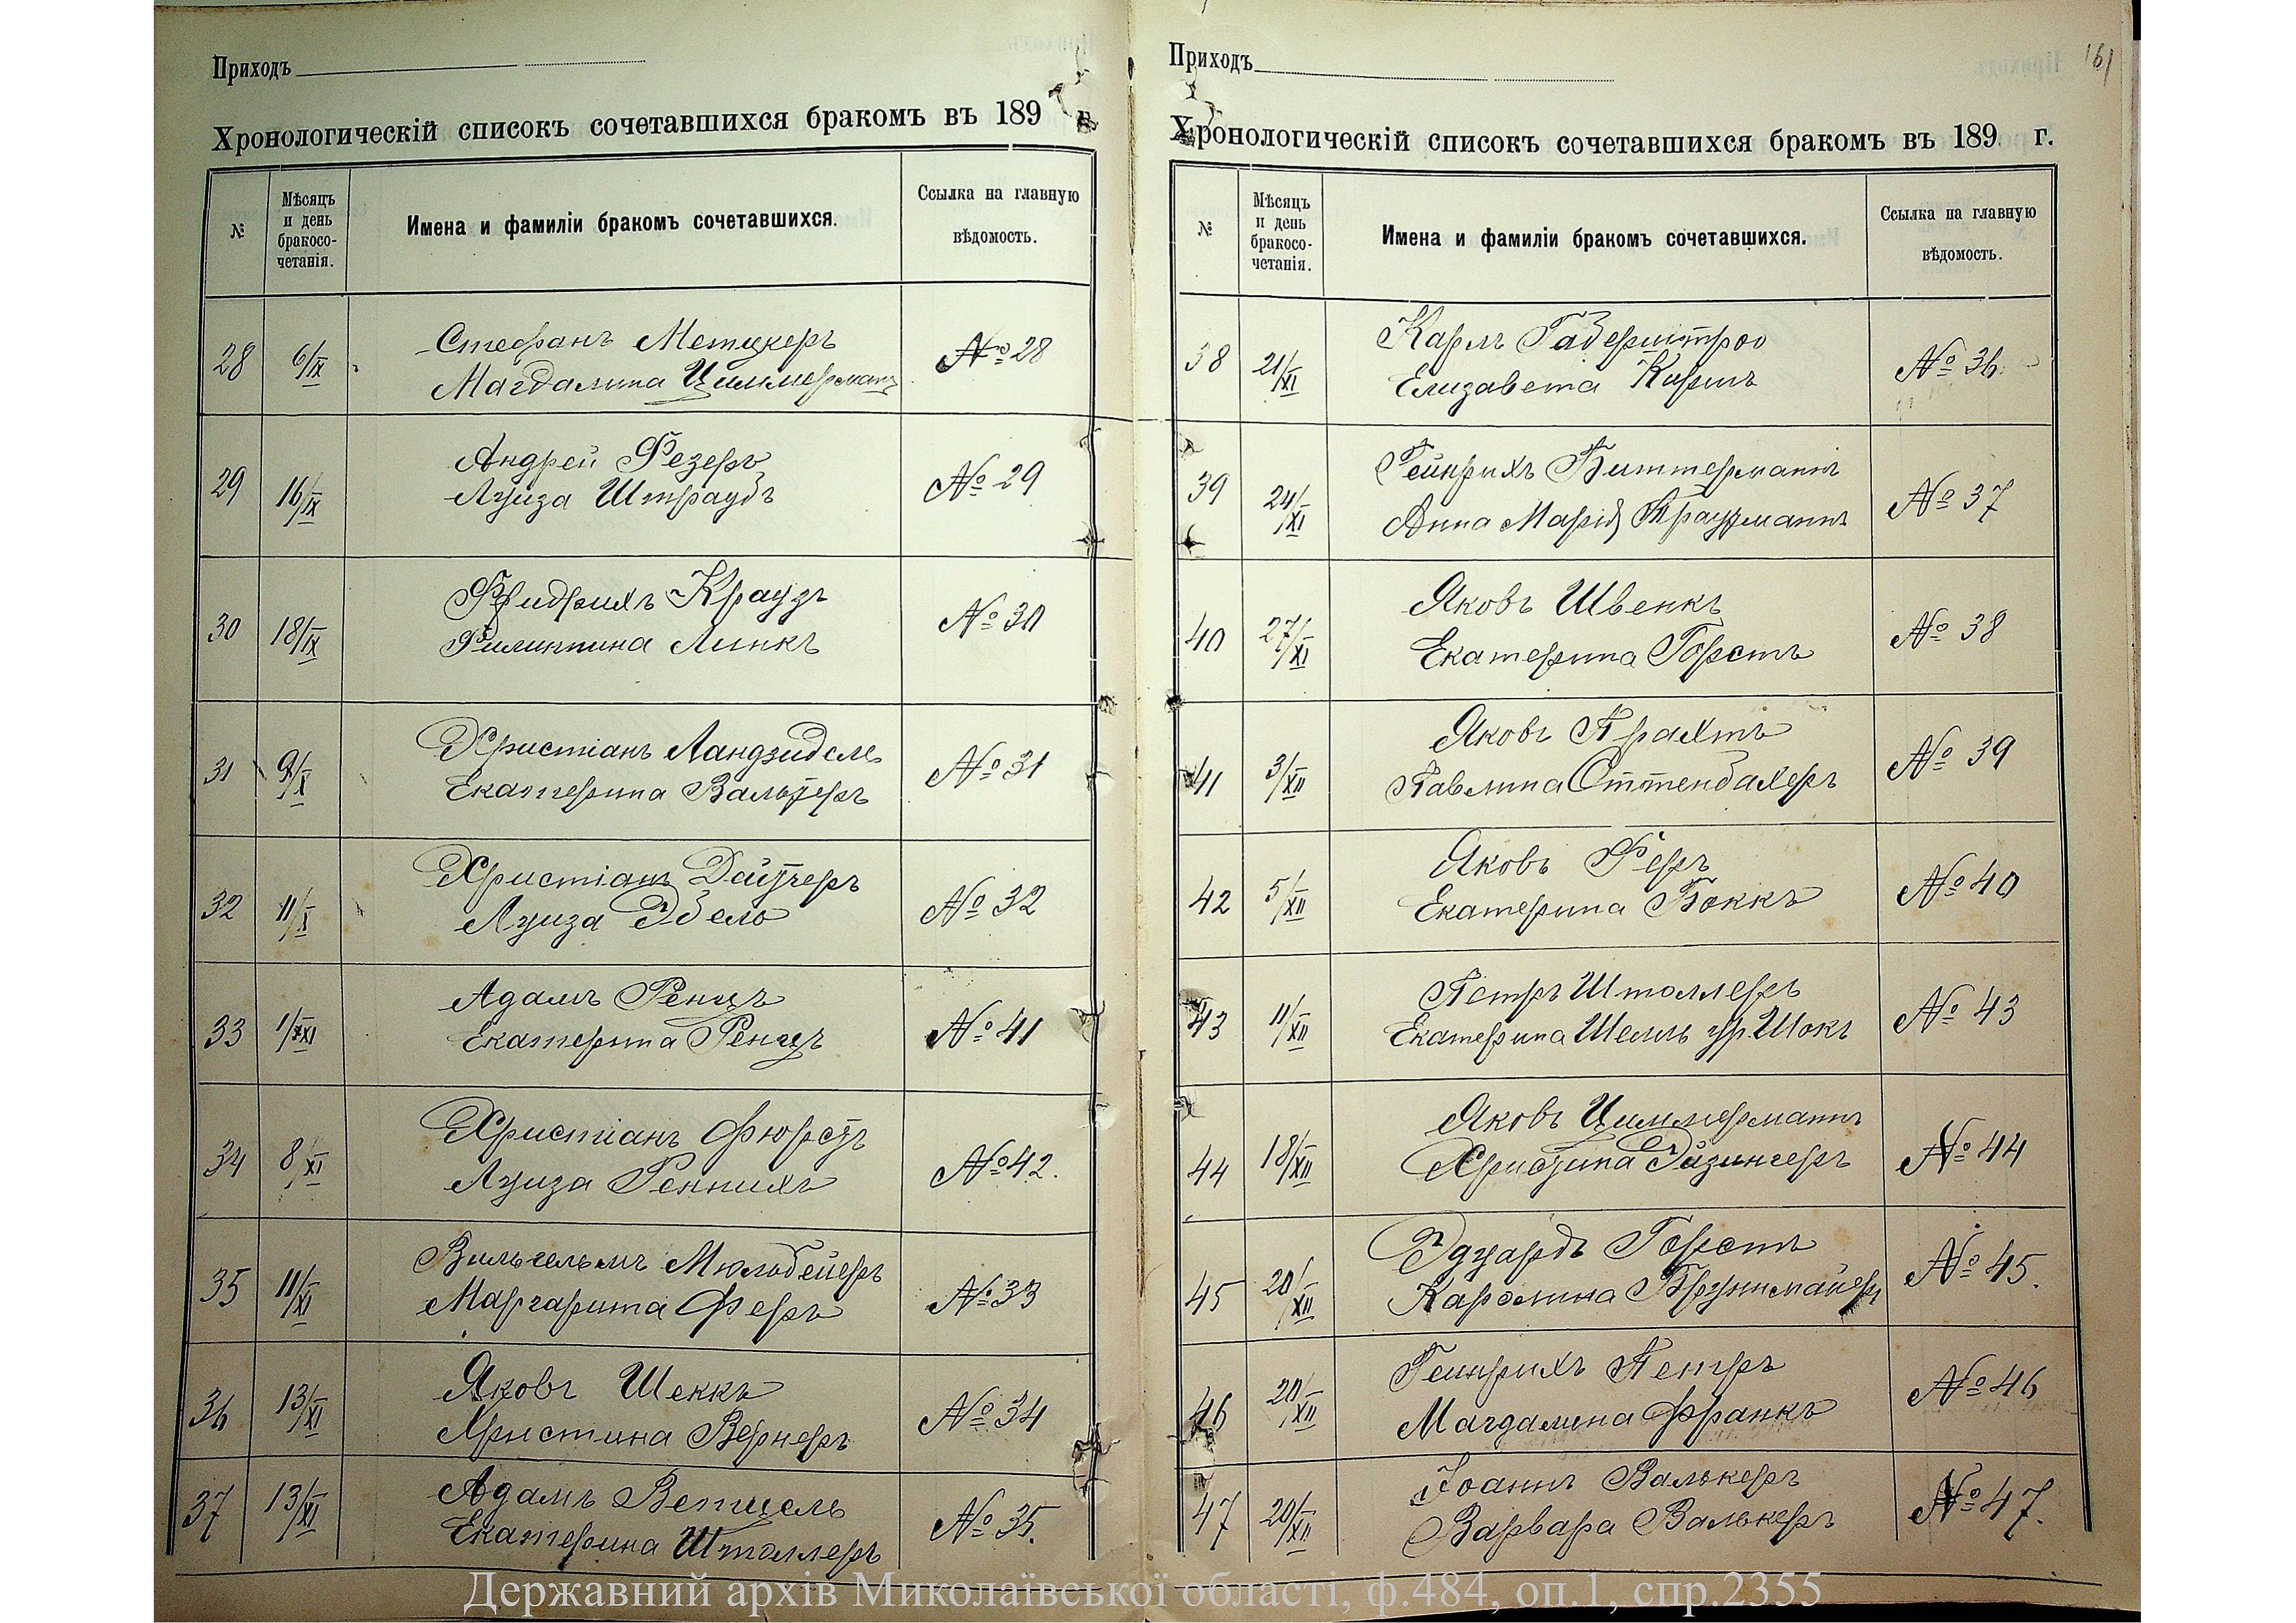 Приходъ
Хронологическій списокъ сочетавшихся бракомъ въ 189 г.
№
Мѣсяцъ и день бракосо-четанія.
Имена и фамиліи бракомъ сочетавшихся.
Ссылка на главную вѣдомость.
28 6/IX Стефанъ Метцкеръ № 28
Магдалина Циммерманъ
29 16/IX Андрей Фезеръ № 29
Луиза Штраубъ
30 18/IX Фридрихъ Краузъ № 30
Филиппина Линкъ
31 9/X Христіанъ Ландзидель № 31
Екатерина Вальтеръ
32 11/X Христіанъ Дейтчеръ № 32
Луиза Эбель
33 1/XI Адамъ Ренцъ № 41
Екатерина Ренцъ
34 8/XI Христіанъ Фюрстъ № 42.
Луиза Реннихъ
35 11/XI Вильгельмъ Мюльбейеръ № 33
Маргарита Феръ
36 13/XI Яковъ Шеккъ № 34
Христина Вернеръ
37 13/XI Адамъ Ветцель № 35.
Екатерина Штоллеръ
Приходъ
161
Хронологическій списокъ сочетавшихся бракомъ въ 189 г.
№
Мѣсяцъ и день бракосо-четанія.
Имена и фамиліи бракомъ сочетавшихся.
Ссылка на главную вѣдомость.
38 21/XI Карлъ Габерштро № 36.
Елизавета Киршъ
39 24/XI Гейнрихъ Биттерманнъ № 37
Анна Марія Траутманнъ
40 27/XI Яковъ Швенкъ № 38
Екатерина Горстъ
41 3/XII Яковъ Прахтъ № 39
Павлина Оттенбахеръ
42 5/XII Яковъ Феръ № 40
Екатерина Боккъ
43 11/XII Петръ Штоллеръ № 43
Екатерина Шелль ур. Шокъ
44 18/XII Яковъ Циммерманнъ № 44
Христина Эйзингеръ
45 20/XII Эдуардъ Горстъ № 45.
Каролина Брунмайеръ
46 20/XII Гейнрихъ Петръ № 46
Магдалина Франкъ
47 20/XII Іоаннъ Валькеръ № 47.
Варвара Валькеръ
Державний архів Миколаївської області, ф.484, оп.1, спр.2355